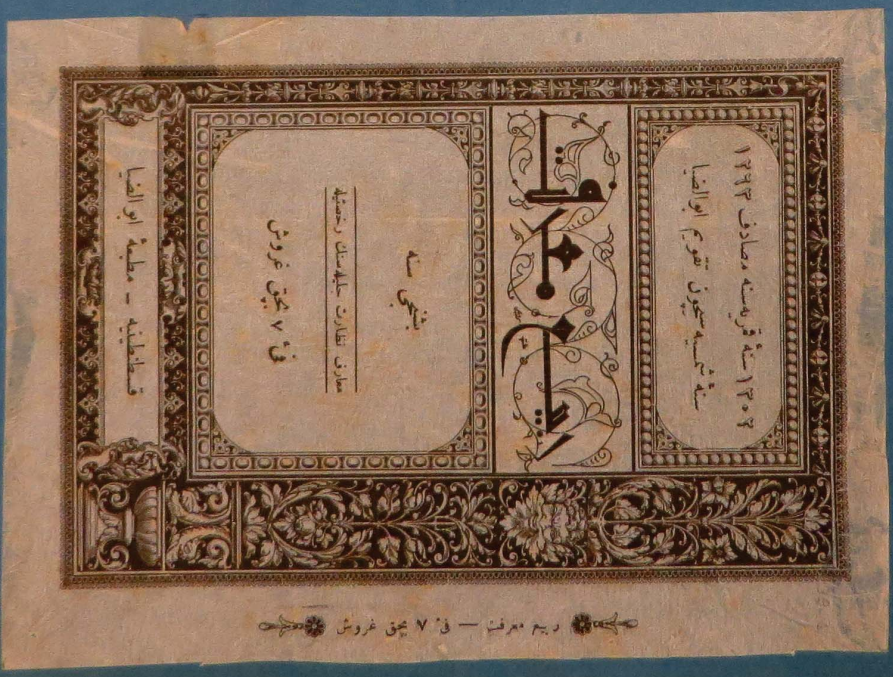 ۱۳۰۳ سنهٔ قمریه‌سنه مصادف ۱۲۶۳
سنهٔ شمسیه‌سیچون تقویم ابوالضیا
بشنجی سنه
معارف نظارت جلیله‌سنك رخصتیله
فیئ ۷ بچق غروش
قسطنطینیه — مطبعهٔ ابوالضیا
ربیع معرفت — فیئ ۷ بچق غروش